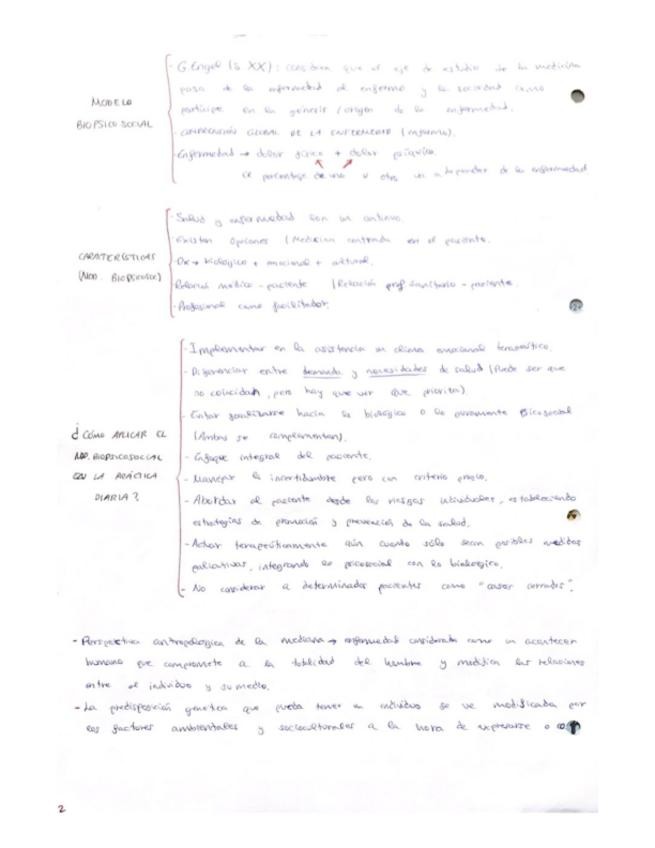 MODELO
BIOPSICOSOCIAL
- G. Engel (s. XX): considera que el eje de estudio de la medicina
pasa de la enfermedad al enfermo y la sociedad como
partícipe en la génesis / origen de la enfermedad.
- COMPRENSIÓN GLOBAL DE LA ENFERMEDAD (enfermo).
- Enfermedad → dolor físico + dolor psíquico.
porcentaje de uno u otro va a depender de la enfermedad
CARACTERÍSTICAS
(MOD. BIOPSICOSOC)
- Salud y enfermedad son un continuo.
- Existen opciones (Medicina centrada en el paciente.
- Dx → biológico + emocional + cultural.
- Relación médico - paciente (Relación prof sanitario - paciente.
- Profesional como facilitador.
¿CÓMO APLICAR EL
MOD. BIOPSICOSOCIAL
EN LA PRÁCTICA
DIARIA?
- Implementar en la asistencia un clima emocional terapéutico.
- Diferenciar entre demanda y necesidades de salud (Puede ser que
no coincidan, pero hay que ver que prioriza).
- Evitar focalizarse hacia lo biológico o lo puramente psicosocial
(Ambas se complementan).
- Enfoque integral del paciente.
- Manejar la incertidumbre pero con criterio
- Abordar al paciente desde los riesgos individuales, estableciendo
estrategias de promoción y prevención de la salud.
- Actuar terapéuticamente aún cuando sólo sean posibles medidas
paliativas, integrando lo psicosocial con lo biológico.
- No considerar a determinados pacientes como "casos cerrados".
- Perspectiva antropológica de la medicina → enfermedad considerada como un acontecer
humano que compromete a la totalidad del hombre y modifica las relaciones
entre el individuo y su medio.
- La predisposición genética que pueda tener un individuo se ve modificada por
los factores ambientales y socioculturales a la hora de expresarse o
2